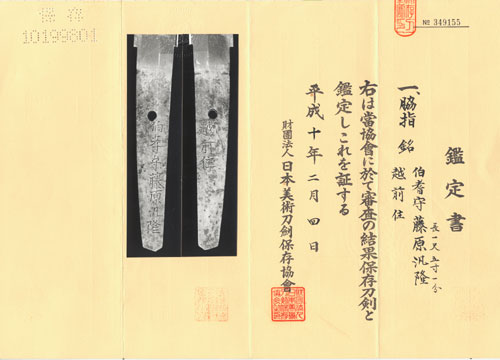 保存
10199804
№ 349155
鑑定書
一、脇指 銘 伯耆守藤原汎隆
越前住
長一尺五寸一分
右は當協會に於て審査の結果保存刀剣と
鑑定しこれを証する
平成十年二月四日
財團法人 日本美術刀劍保存協會
伯耆守藤原汎隆
越前住